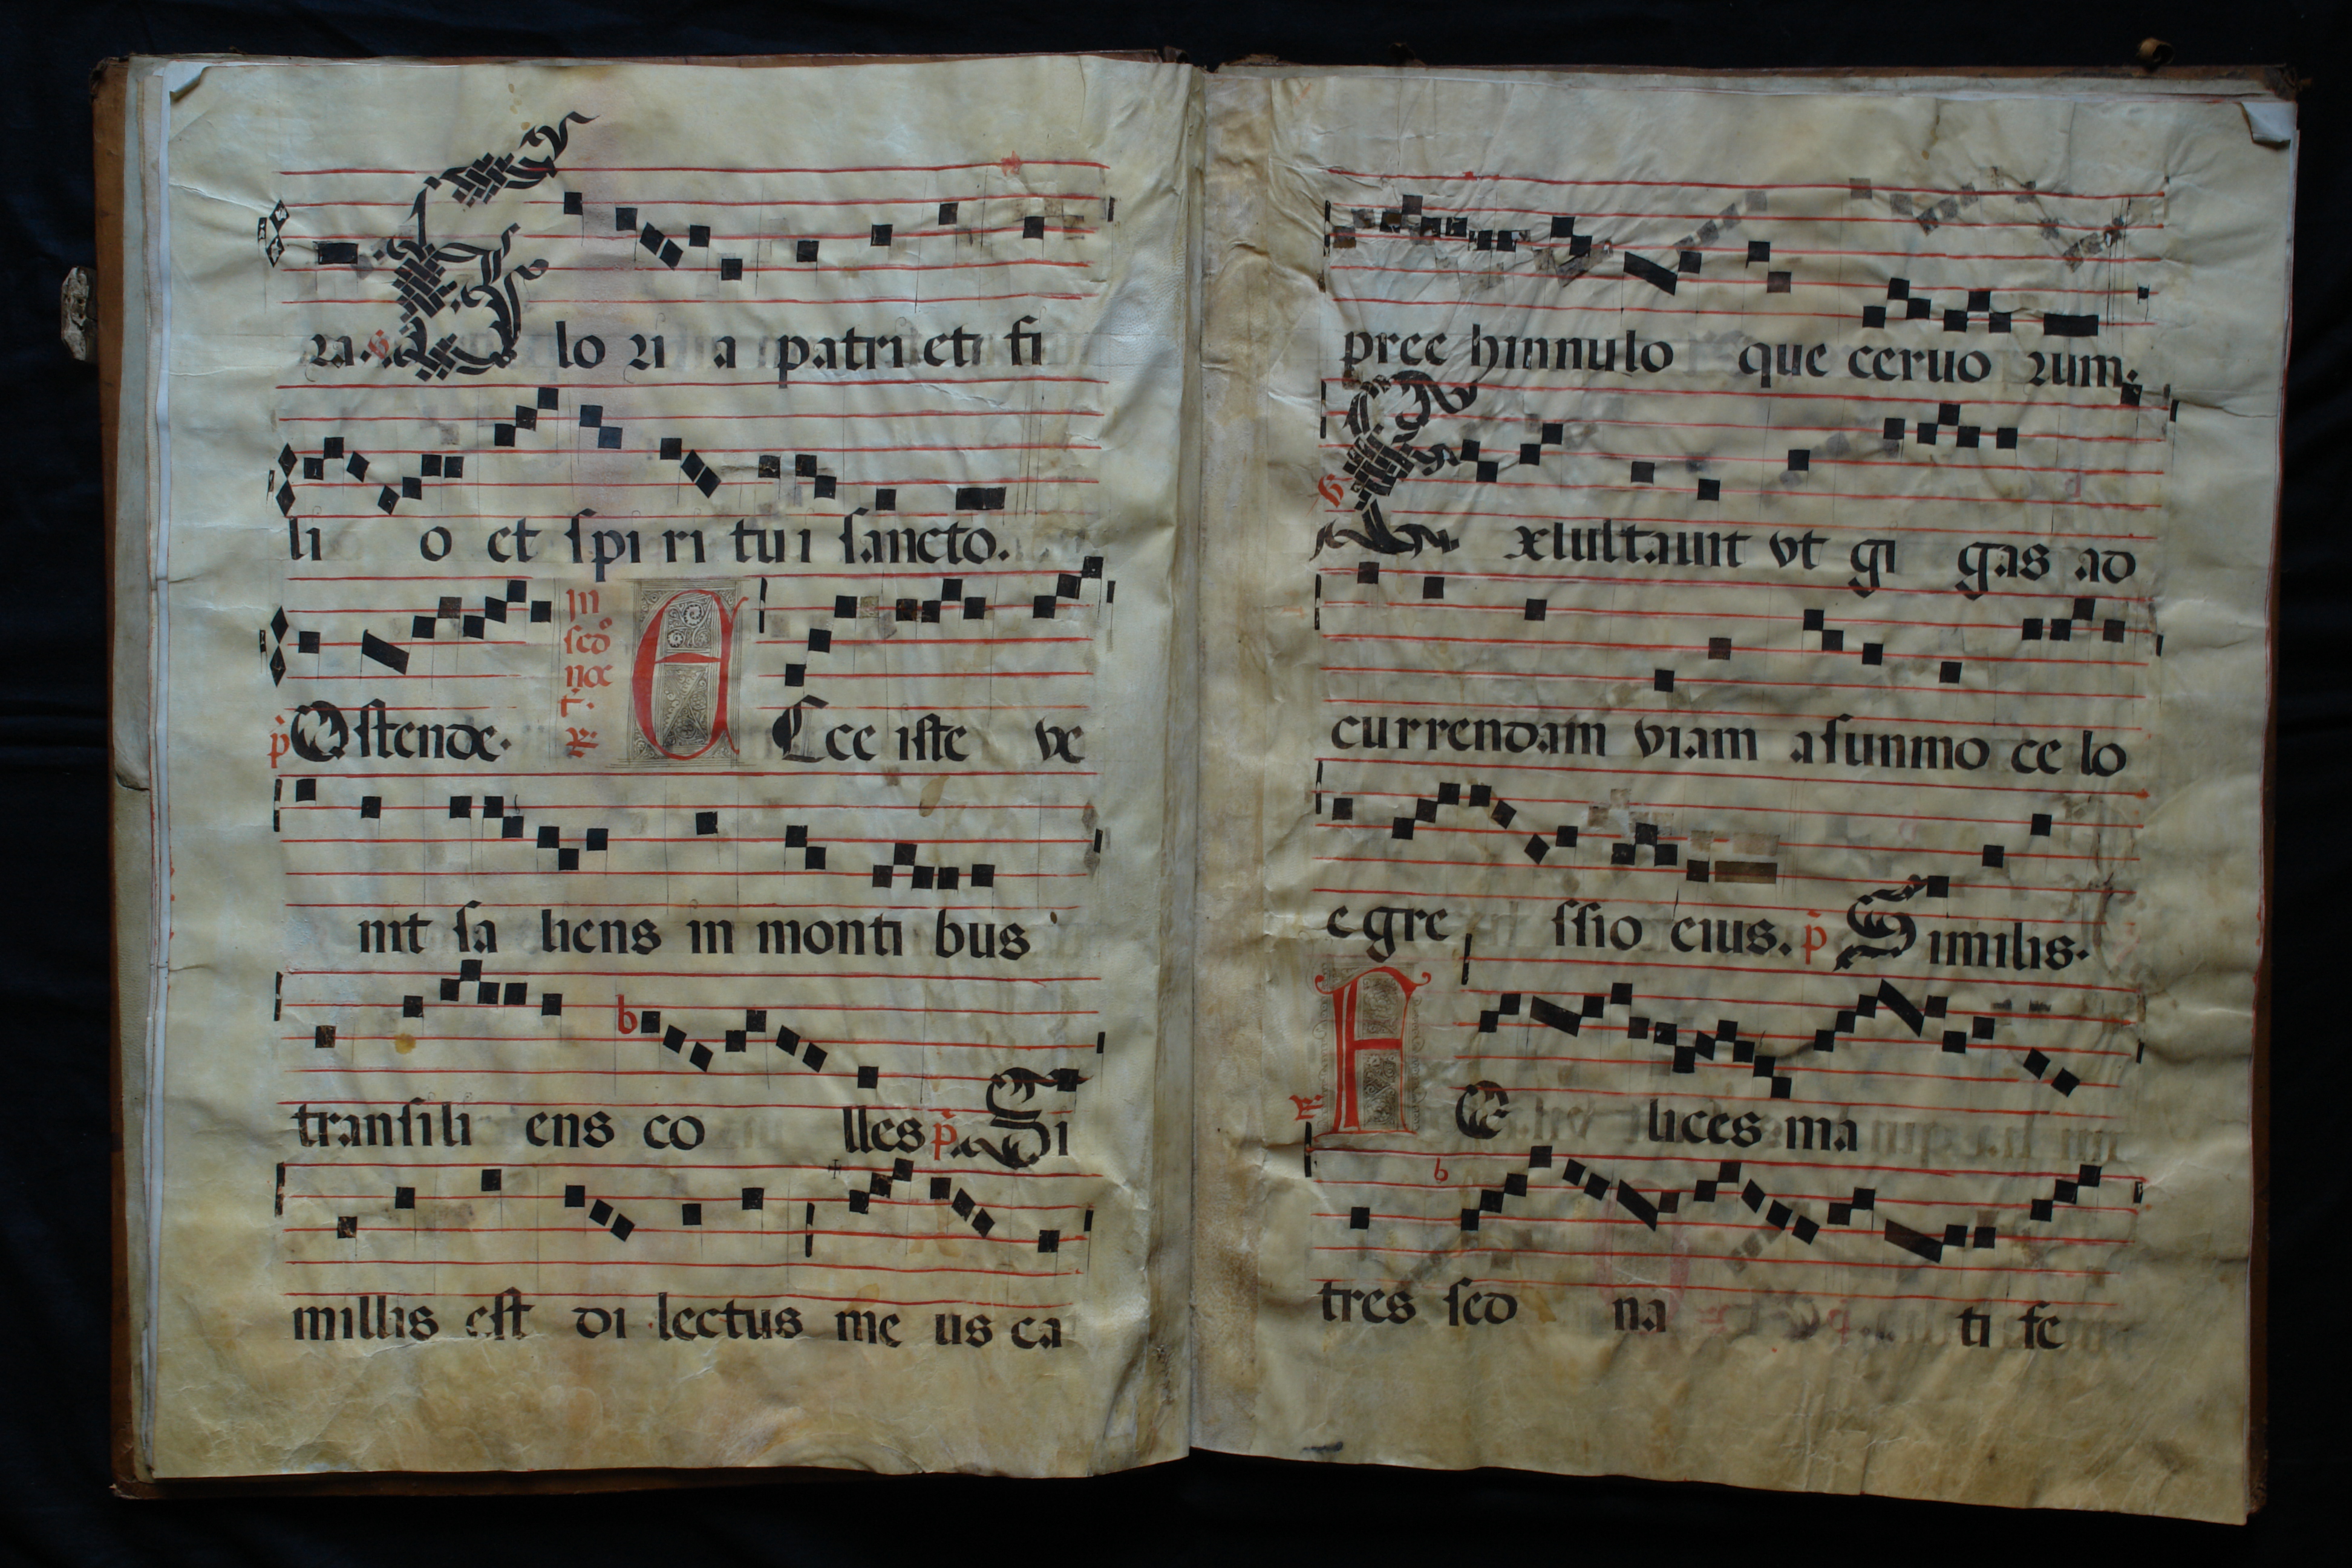 ra. Glo ri a patri et fi
li o et ſpi ri tu i ſancto.
p̄ Oſtende.
In
ſcd̄o
noc
t.
℟
E Cce iſte ve
nit ſa liens in monti bus
tranſili ens co lles p̄. Si
millis eſt di lectus me us ca
pree hinnulo que ceruo rum.
Exſultauit vt gi gas ad
currendam viam a ſunmo ce lo
egre ſſio eius. p̄ Similis.
℟ F E lices ma
tres ſed na ti fe